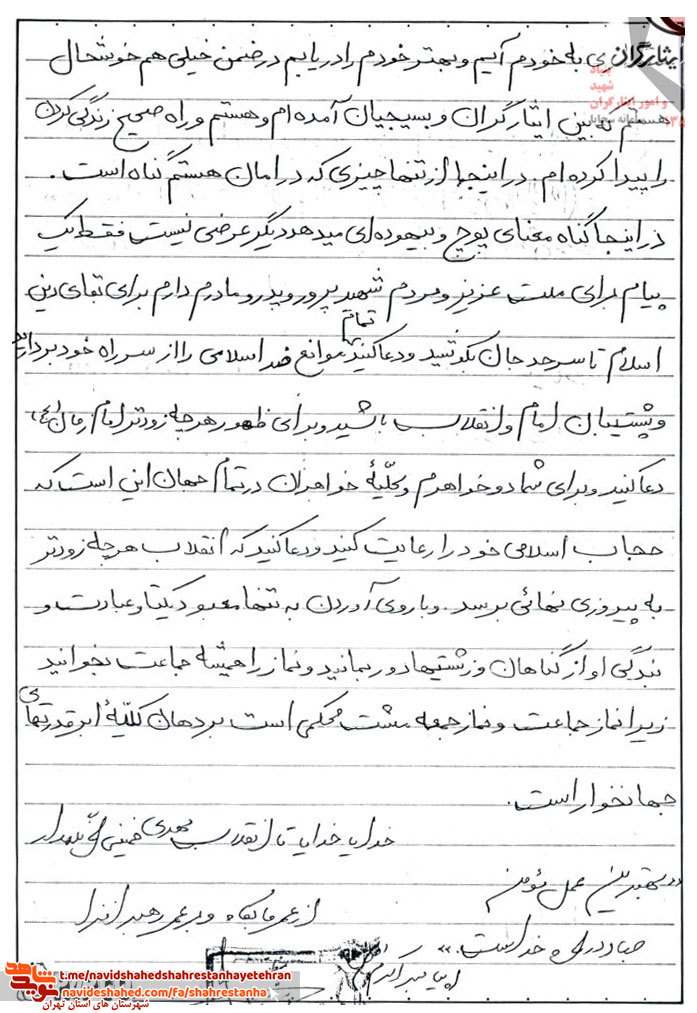 ایثارگران
ی به خودم آیم و بهتر خودم را دریابم در ضمن خیلی هم خوشحال
هستم که بین ایثارگران و بسیجیان آمده ام و هستم و راه صحیح زندگی کردن
را پیدا کرده ام. در اینجا از تنها چیزی که در امان هستم گناه است.
در اینجا گناه معنای پوچ و بیهوده ای میدهد دیگر عرضی نیست فقط یک
پیام برای ملت عزیز و مردم شهید پرور و پدر و مادرم دارم برای بقای دین
اسلام تا سر حد جان بکوشید و دعا کنید تمام موانع ضد اسلامی را از سر راه خود بردارید
و پشتیبان امام و انقلاب باشید و برای ظهور هر چه زودتر امام زمان (ع)
دعا کنید و برای شما دو خواهرم و کلیّهٔ خواهران در تمام جهان این است که
حجاب اسلامی خود را رعایت کنید و دعا کنید که انقلاب هر چه زودتر
به پیروزی نهائی برسد. و با روی آوردن به تنها معبود یکتا و عبادت و
بندگی او از گناهان و زشتیها دور بمانید و نماز را همیشه جماعت بخوانید
زیرا نماز جماعت و نماز جمعه مشت محکمی است بر دهان کلیّهٔ ابرقدرتهای
جهانخوار است.
خدایا خدایا تا انقلاب مهدی خمینی را نگهدار
از عمر ما بکاه و بر عمر رهبر افزا
«بهترین عمل مؤمن
جهاد در راه خداست.»
پیامبر اکرم
بنیاد
شهید
و امور ایثارگران
سامانه سجایا
نوید شاهد
t.me/navidshahedshahrestanhayetehran
navideshahed.com/fa/shahrestanha
شهرستان های استان تهران